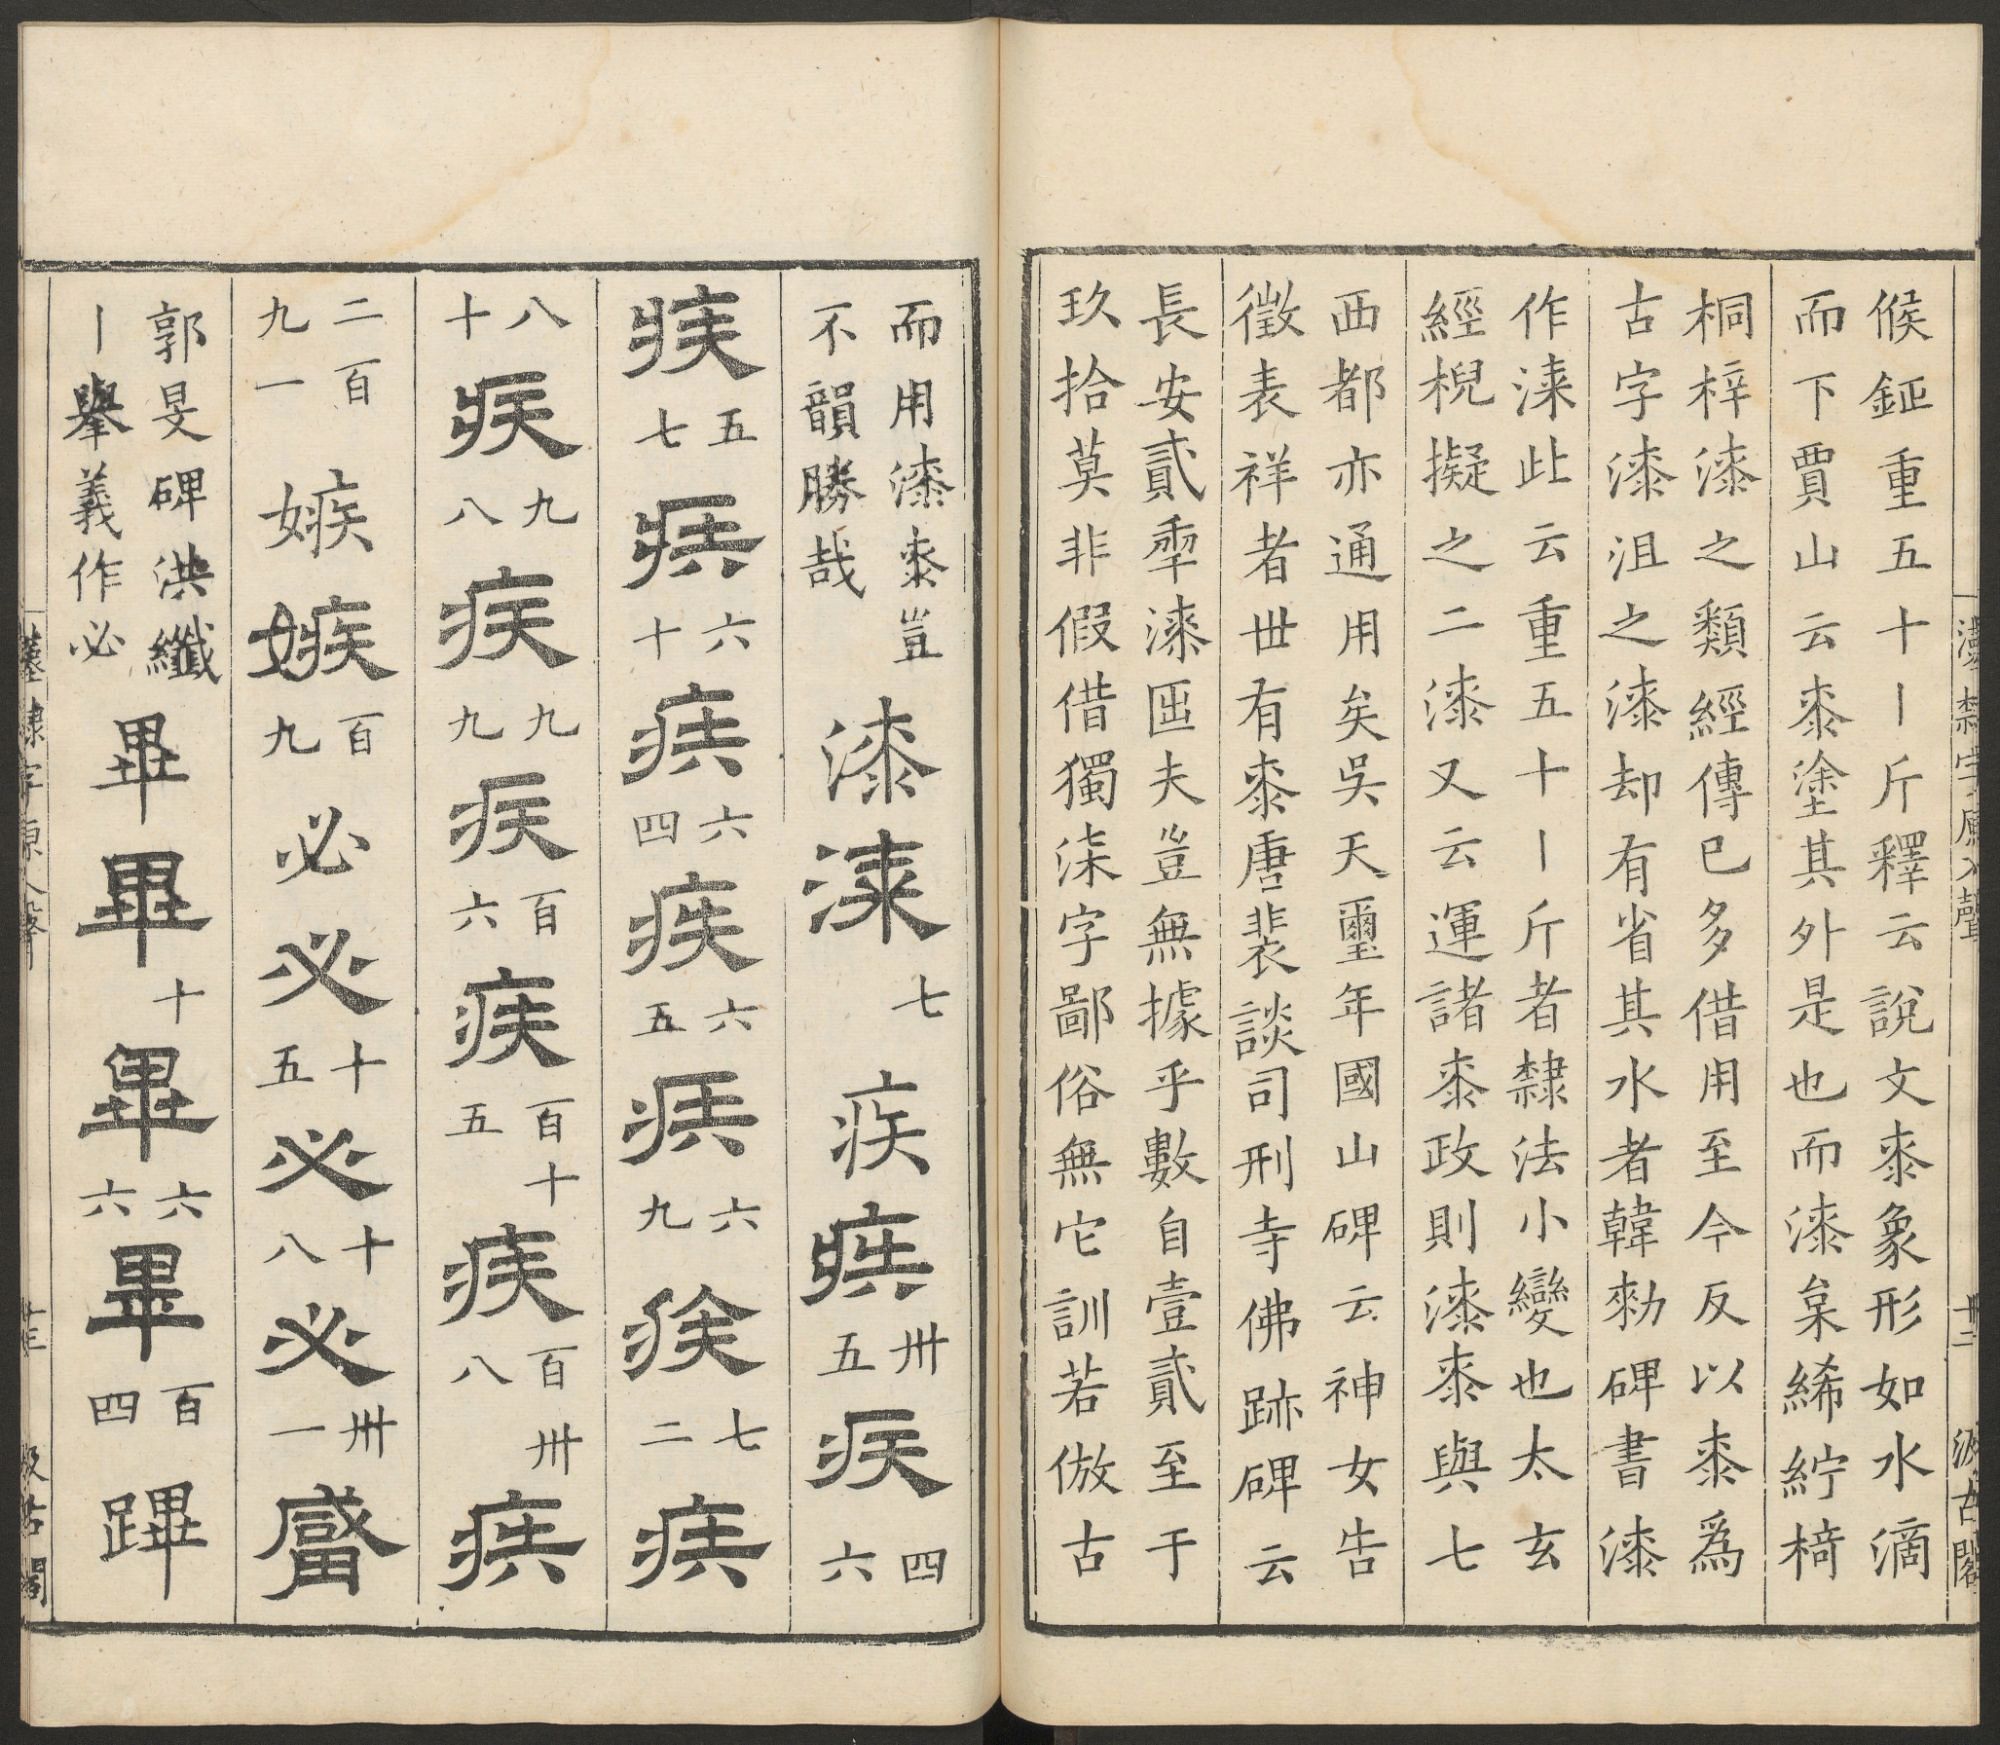 候鉦重五十丨斤釋云說文桼象形如水滴
而下賈山云桼塗其外是也而漆枲絺紵椅
桐梓漆之類經傳已多借用至今反以桼爲
古字漆沮之漆却有省其水者韓勑碑書漆
作涑此云重五十丨斤者隸法小變也太玄
經棿擬之二漆又云運諸桼政則漆桼與七
西都亦通用矣吳天璽年國山碑云神女告
徵表祥者丗有桼唐裴談司刑寺佛跡碑云
長安貳年漆匝夫豈無據乎數自壹貳至于
玖拾莫非假借獨柒字鄙俗無它訓若倣古
漢隸字源入聲 十二 汲古閣
而用漆桼豈
不韻勝哉
漆 漆 七 疾 疾 卅五 疾 四六
疾 五七 疾 六十 疾 六四 疾 六五 疾 六九 疾 七二 疾
八十 疾 九八 疾 九九 疾 百六 疾 百十五 疾 百卅八 疾
二百九一 嫉 嫉 百九 必 必 十五 必 十八 必 卅一
郭旻碑洪纖
丨舉義作必
畢 畢 十 畢 六六 畢 百四 蹕
漢隸字源入聲 汲古閣